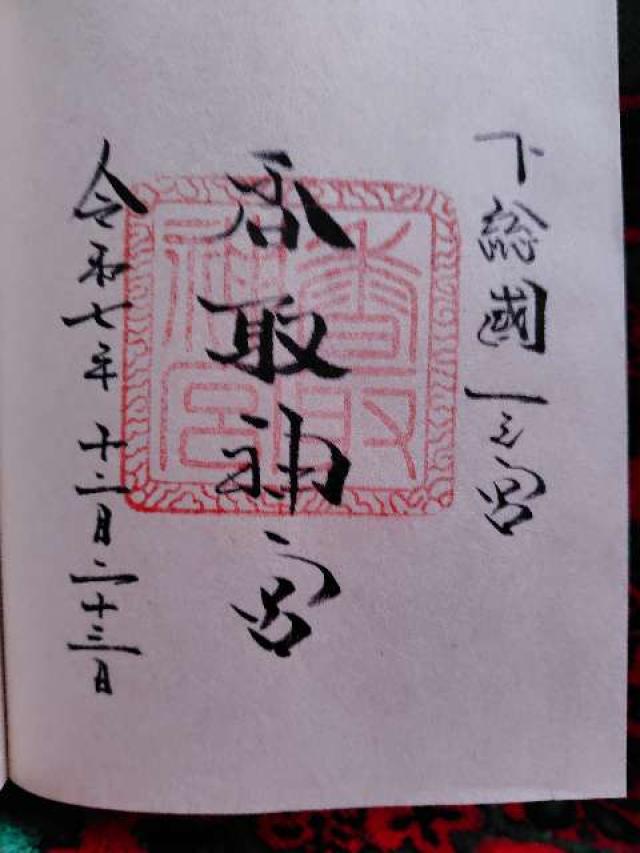 下総國一之宮
香取神宮
香取神宮
令和七年十二月二十三日